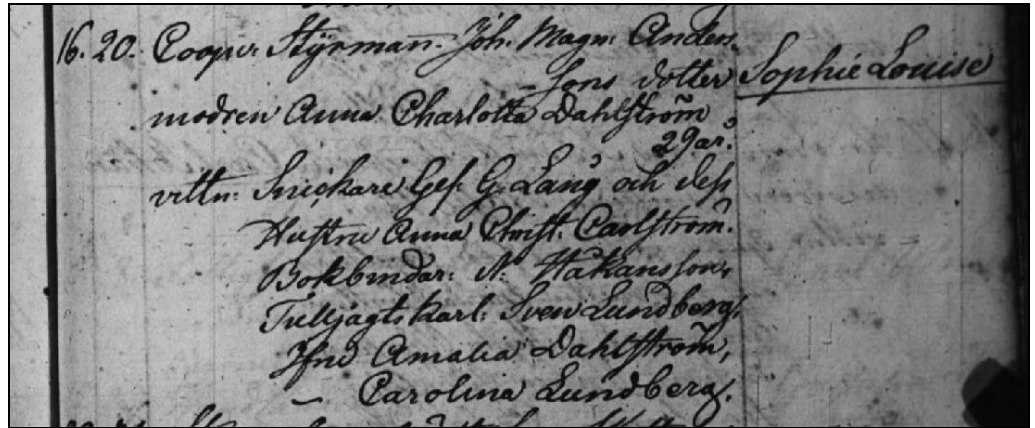 16. 20. Coop: Styrman. Joh. Magn. Anders-
sons dotter Sophie Louise
modren Anna Charlotta Dahlström
29 år.
vittn: Snickare Ges. G. Lang och dess
Hustru Anna Christ. Carlström.
Bokbindar: N. Håkansson,
Tulljagtskarl: Sven Lundberg,
Jfru Amalia Dahlström,
— Carolina Lundberg.